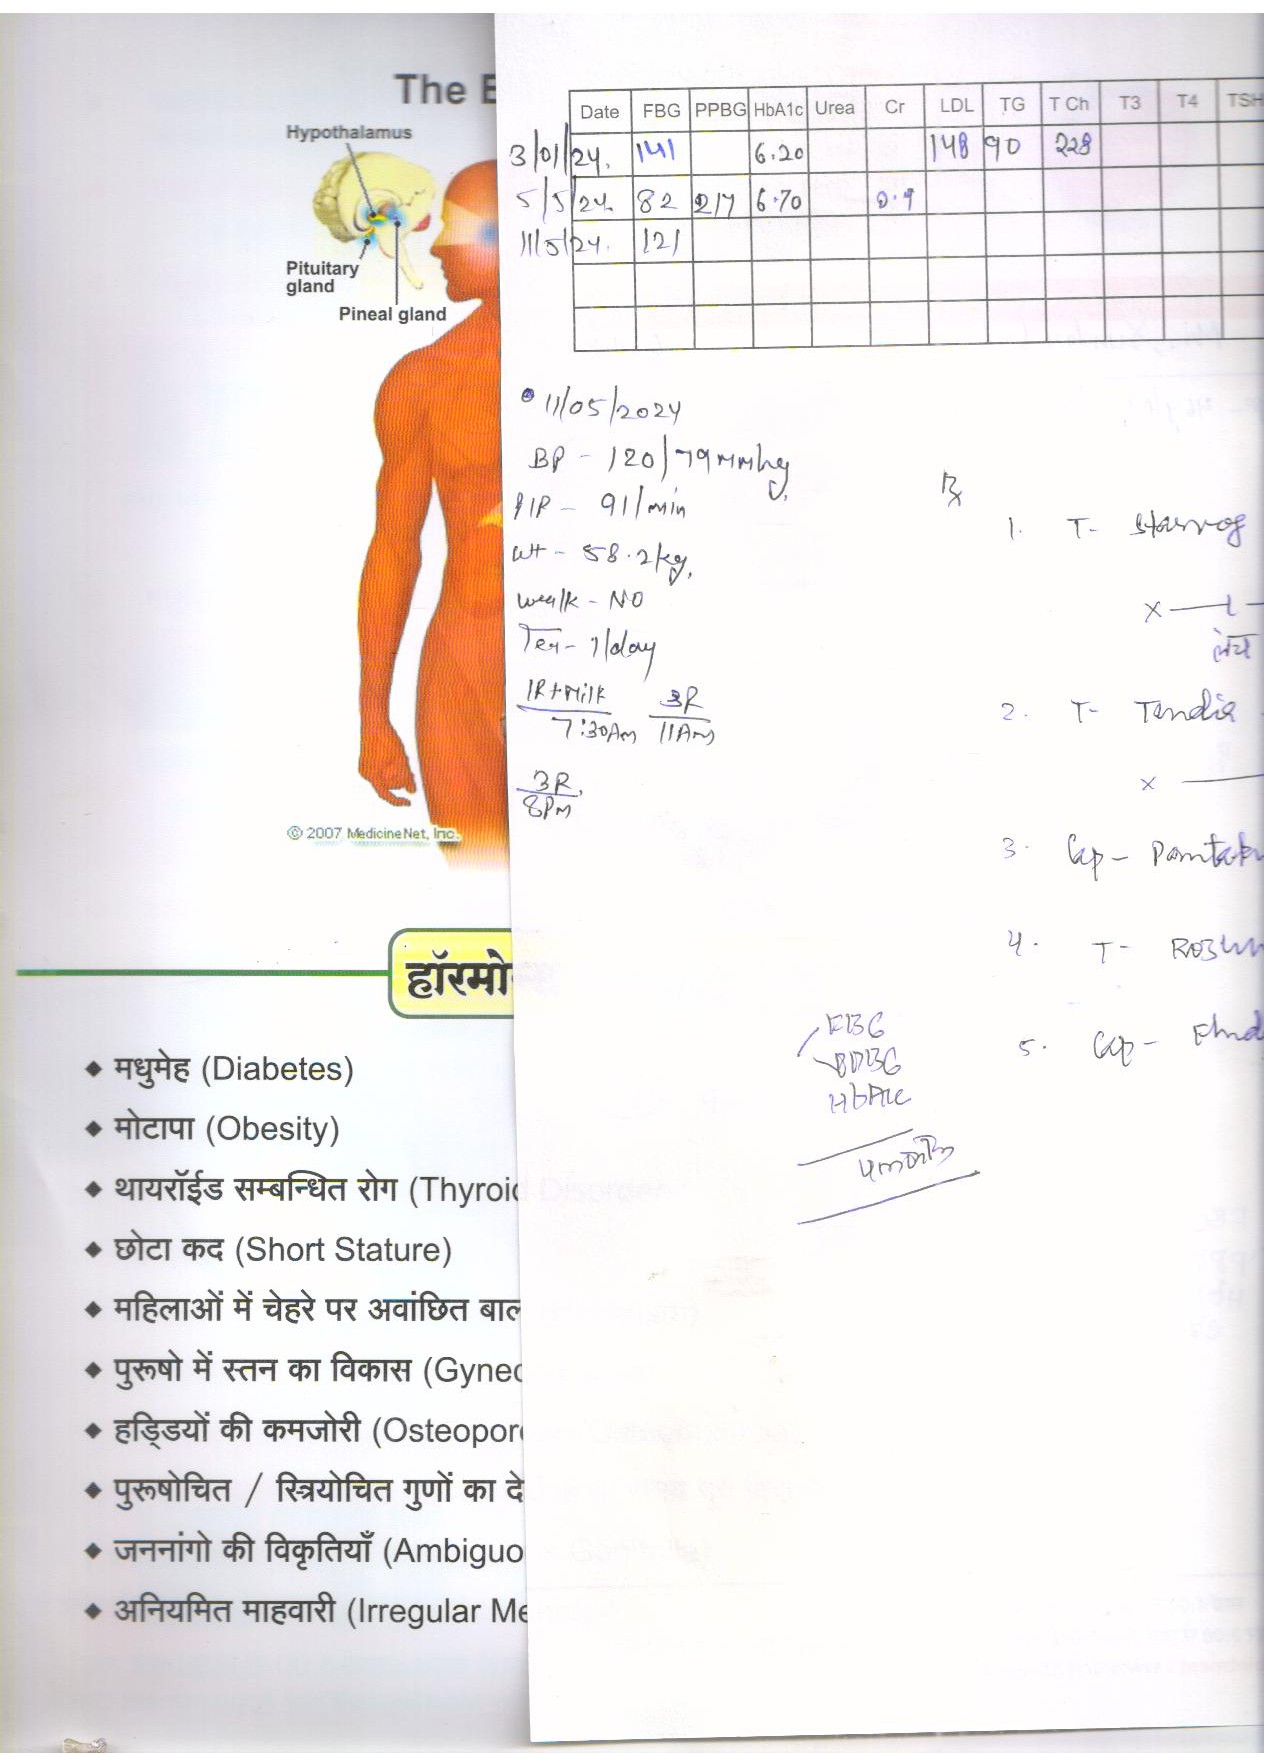 The E
Hypothalamus
Pituitary
gland
Pineal gland
© 2007 MedicineNet, Inc.
हॉरमो
◆ मधुमेह (Diabetes)
◆ मोटापा (Obesity)
◆ थायरॉईड सम्बन्धित रोग (Thyroid
◆ छोटा कद (Short Stature)
◆ महिलाओं में चेहरे पर अवांछित बाल
◆ पुरूषो में स्तन का विकास (Gynec
◆ हड्डियों की कमजोरी (Osteopor
◆ पुरूषोचित / स्त्रियोचित गुणों का दे
◆ जननांगो की विकृतियाँ (Ambiguo
◆ अनियमित माहवारी (Irregular Me
Date FBG PPBG HbA1c Urea Cr LDL TG T Ch T3 T4 TSH
3/01/24. 141 6.20 148 90 228
5/5/24 82 217 6.70 0.9
11/5/24. 121
11/05/2024
BP - 120/79 mmhg
P/R - 91/min
wt - 58.2kg,
walk - NO
Tea - 1/day
1R+Milk 3R
7:30Am 11Am
3R
8Pm
Rx
1. T-
x
2. T-
x
3. Cap -
4. T-
5. Cap -
FBG
HbA1c